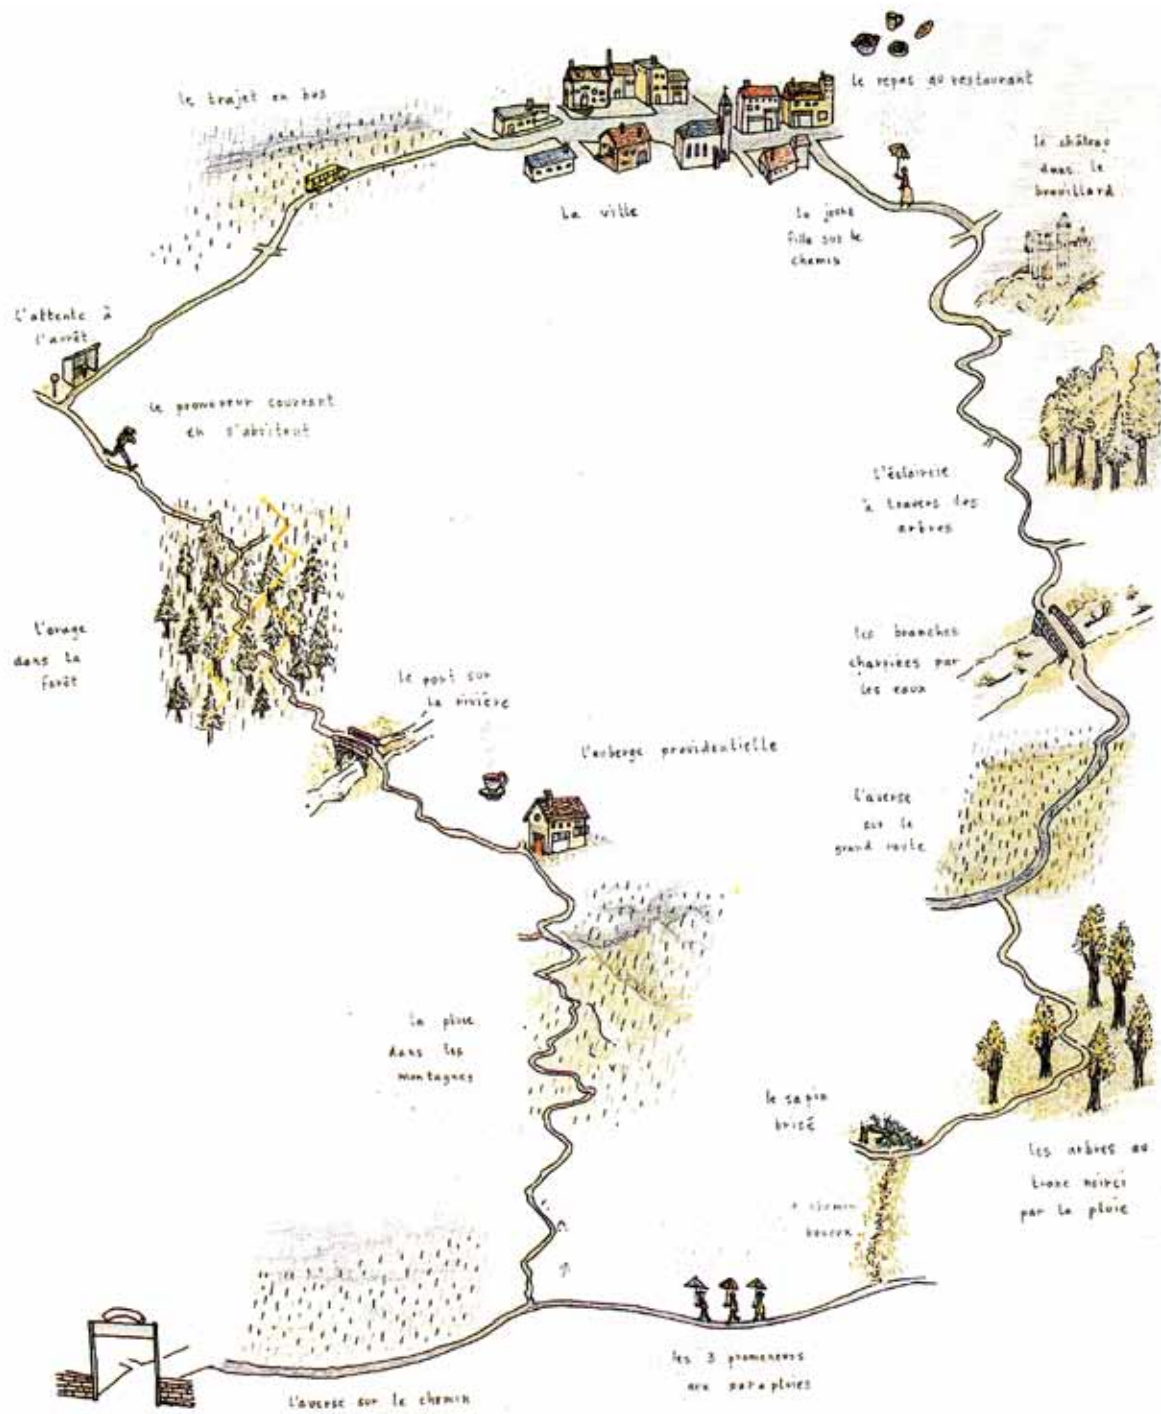 le repas au restaurant
le trajet en bus
le château
dans le
brouillard
La ville
la jeune
fille sur le
chemin
l'attente à
l'arrêt
le promeneur courant
en s'abritant
l'éclaircie
à travers les
arbres
l'orage
dans la
forêt
les branches
charriées par
les eaux
le pont sur
la rivière
l'auberge providentielle
l'averse
sur la
grand route
la pluie
dans les
montagnes
le sapin
brisé
les arbres au
tronc noirci
par la pluie
chemin
boueux
les 3 promeneurs
aux parapluies
l'averse sur le chemin